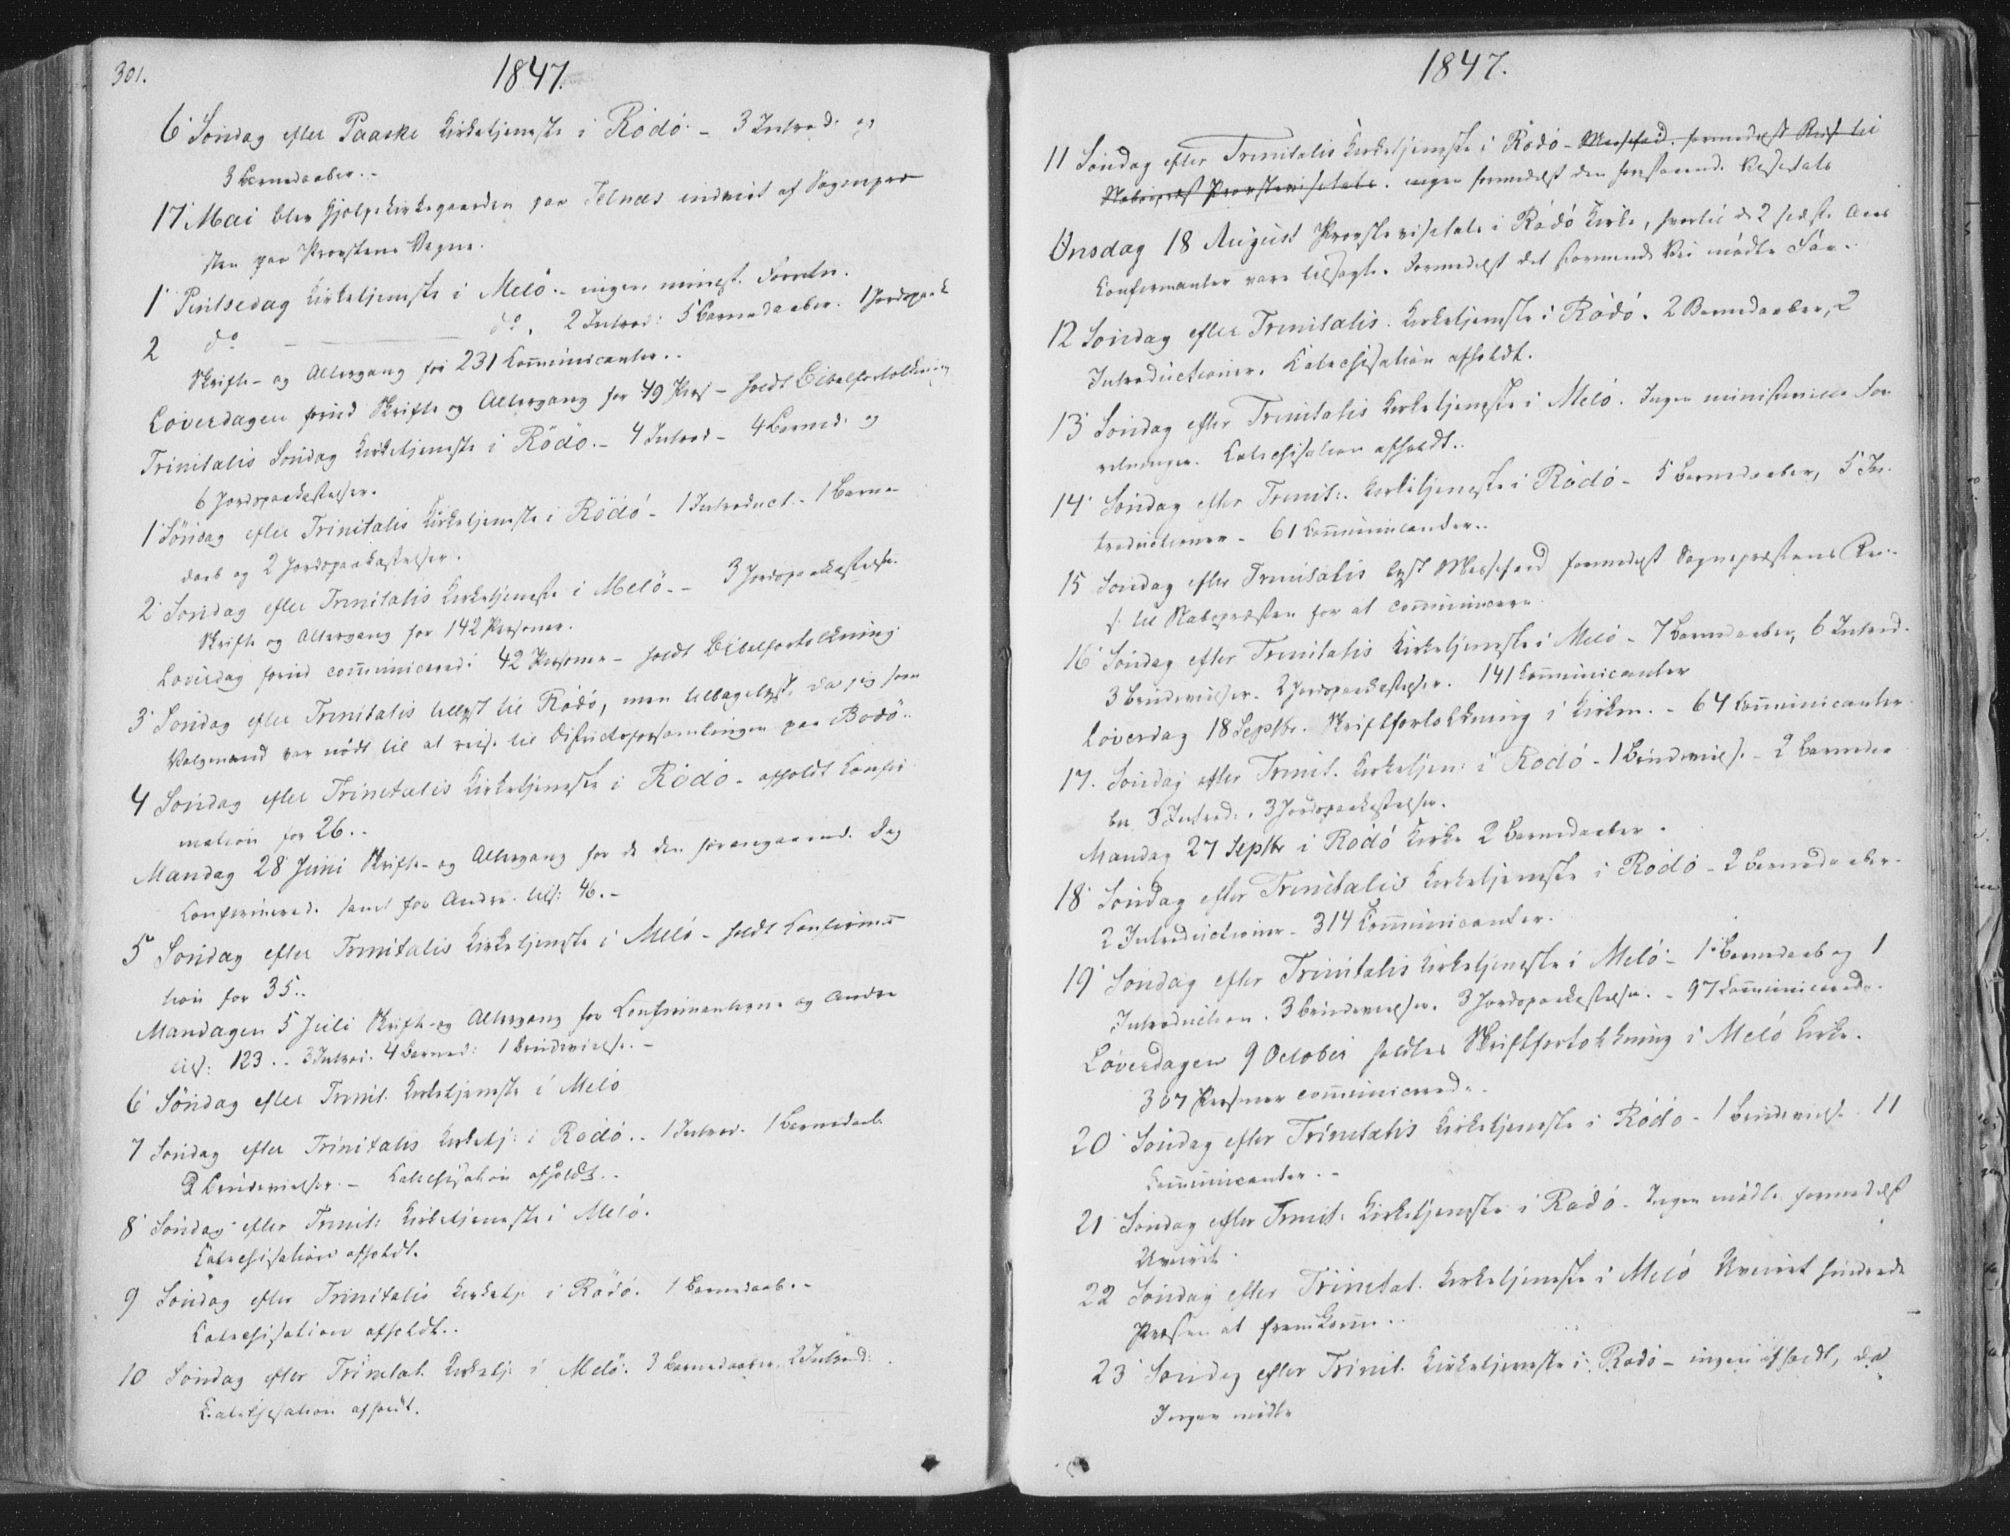 301.
1847.
6' Søndag efter Paaske Kirketjeneste i Rödö. - 3 Introd: og
3 Barnedaaber. -
17' Mai blev Hjelpekirkegaarden paa Telnæs indviet af Sognepræ
sten paa Provstens Vegne.
1' Pintsedag Kirketjeneste i Melö. - ingen minist. Forretn.
2 do do. 2 Introd: 5 Barnedaaber. 1 Jordspaak
Skrifte- og Altergang for 231 Com̄unicanter. .
Löverdagen forud Skrifte og Altergang for 49 Pers - holdt Bibelfortolkning
Trinitatis Söndag Kirketjeneste i Rödö. - 4 Introd - 4 Barned. og
6 Jordspaakastelser.
1' Söndag efter Trinitatis Kirketjeneste i Rödö - 1 Introduct. - 1 Barne-
daab og 2 Jordspaakastelser.
2' Söndag efter Trinitatis Kirketjeneste i Melö. - 3 Jordspaakastelser.
Skrifte og Altergang for 142 Personer.
Löverdag forud com̄unicerede 42 Personer - holdt Bibelfortolkning
3' Söndag efter Trinitatis tillyst til Rödö, men tilbagelyst, da jeg som
Valgmand var nödt til at reise til Districtsforsamlingen paa Bodö. .
4 Söndag efter Trinitatis Kirketjeneste i Rödö - afholdt Confir
mation for 26. .
Mandag 28 Juni Skrifte- og Altergang for de den foregaaende Dag
Confirmerede samt for Andre tils: 46. -
5 Söndag efter Trinitatis Kirketjeneste i Melö - holdt Confirma
tion for 35. .
Mandagen 5 Juli Skrifte- og Altergang for Confirmanterne og Andre
tils: 123. . 3 Introd. 4 Barned: 1 Brudevielse. -
6' Söndag efter Trinit. Kirketjeneste i Melö
7 Söndag efter Trinitatis Kirketj: i Rödö. . 1 Introd. 1 Barnedaab.
2 Brudevielser. - Catechisation afholdt. .
8' Söndag efter Trinit: Kirketjeneste i Melö.
Catechisation afholdt.
9 Söndag efter Trinitatis Kirketj: i Rödö. 1 Barnedaab. -
Catechisation afholdt. .
10 Söndag efter Trinitat. Kirketj: i Melö. 3 Barnedaaber. 2 Introd:
Catechisation afholdt.
1847.
11 Söndag efter Trinitatis Kirketjeneste i Rödö - Messefald formedelst Reise til
Provstevisitats. ingen formedelst den forestaaende Visitats
Onsdag 18 August Provstevisitats i Rödö Kirke, hvortil de 2 sidste Aars
Confirmanter vare tilsagte. Formedelst det stormende Veir mödte Faa. .
12 Söndag efter Trinitatis. Kirketjeneste i Rödö. 2 Barnedaaber, 2
Introductioner. Catechisation afholdt.
13' Söndag efter Trinitatis Kirketjeneste i Melö. Ingen ministerielle For
retninger. Catechisation afholdt. .
14' Söndag efter Trinit:. Kirketjeneste i Rödö - 5 Barnedaaber, 5 In-
troductioner - 61 Com̄unicanter. .
15 Söndag efter Trinitatis lyst Messefald formedelst Sognepræstens Rei-
se til Nabopræsten for at com̄unicere
16' Söndag efter Trinitatis Kirketjeneste i Melö - 7 Barnedaaber, 6 Introd.
3 Brudevielser. 2 Jordspaakastelser. 141 Com̄unicanter
Löverdag 18 Septbr. Skriftfortolkning i Kirken. - 64 Com̄unicanter
17. Söndag efter Trinit. Kirketjen: i Rödö - 1 Brudevielse - 2 Barnedaa
ber 3 Introd:. 3 Jordspaakastelser.
Mandag 27 Septbr i Rödö Kirke 2 Barnedaaber.
18' Söndag efter Trinitatis Kirketjeneste i Rödö - 2 Barnedaaber.
2 Introductioner - 314 Com̄unicanter.
19' Söndag efter Trinitatis Kirketjeneste i Melö - 1 Barnedaab og 1
Introduction. 3 Brudevielser. 3 Jordspaakastelser. - 97 Com̄unicerede.
Löverdagen 9 October holdtes Skriftfortolkning i Melö Kirke.
307 Personer com̄unicerede.
20' Söndag efter Trinitatis Kirketjeneste i Rödö - 1 Brudevielse. 11
Com̄unicanter. -
21 Söndag efter Trinit. Kirketjeneste i Rödö - Ingen mödte formedelst
Uveir.
22 Söndag efter Trinitat. Kirketjeneste i Melö Uveiret hindrede
Præsten at fremkom̄e. .
23' Söndag efter Trinit. Kirketjeneste i Rödö - ingen afholdt, da
Ingen mödte